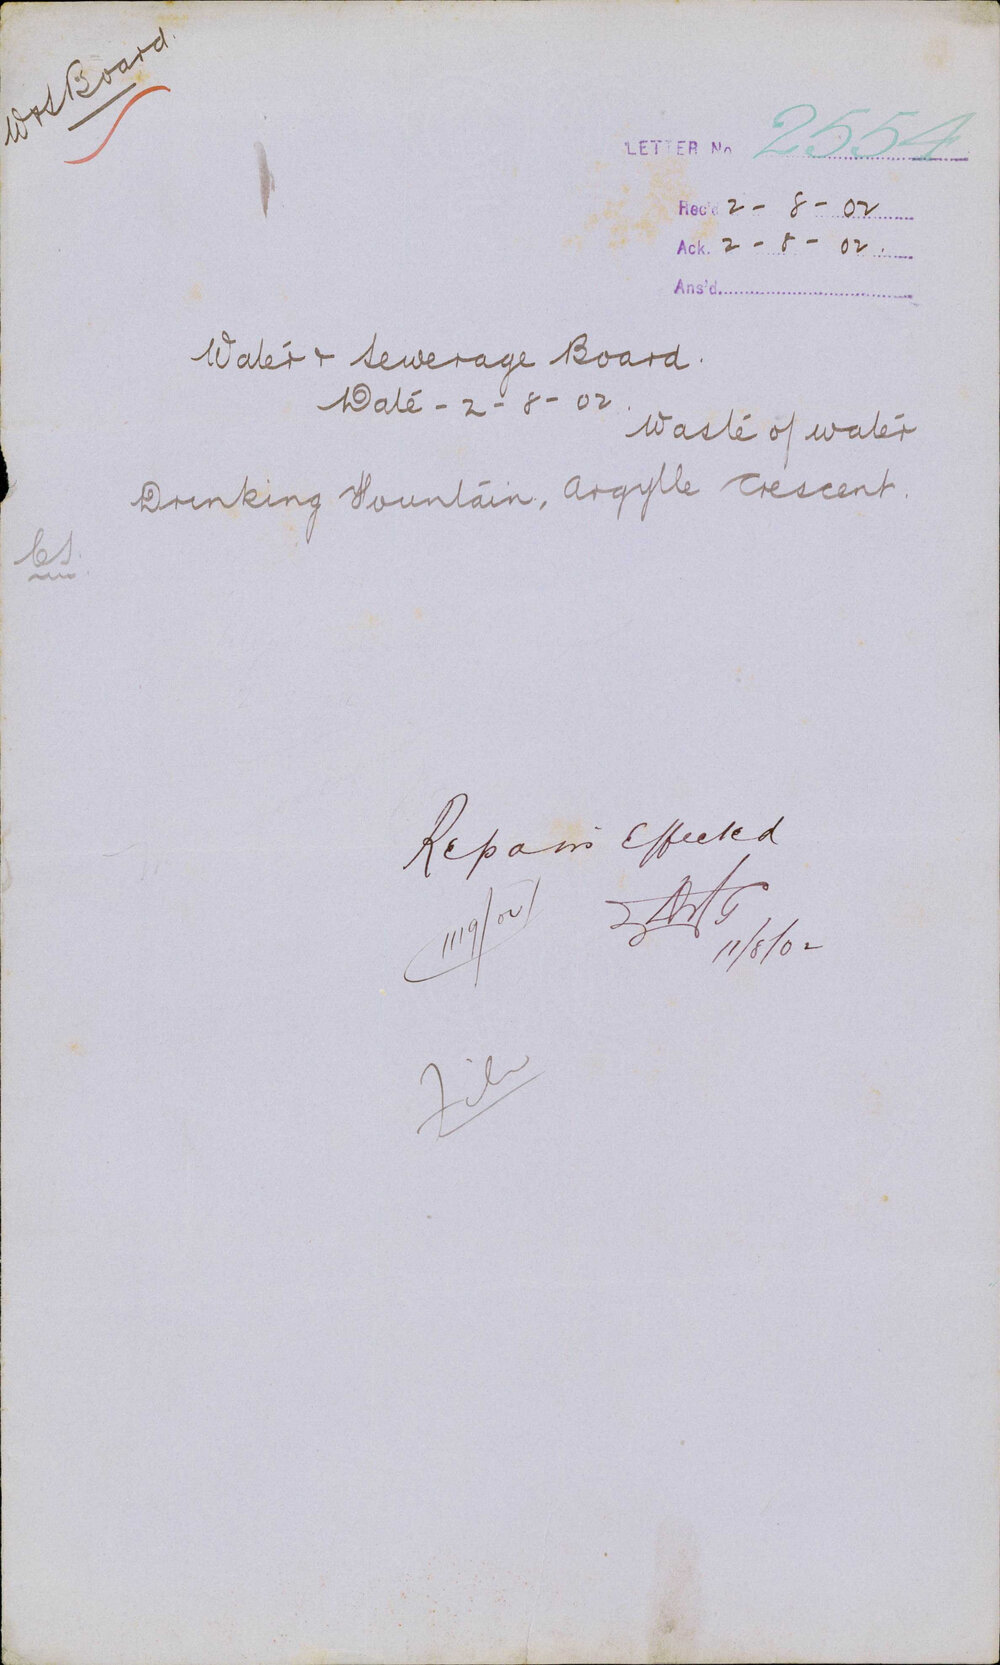 W & S Board.
LETTER No 2554
Rec'd 2 - 8 - 02
Ack. 2 - 8 - 02.
Ans'd
Water & Sewerage Board.
Date - 2 - 8 - 02.
Waste of water
Drinking Fountain, Argylle Crescent.
CS.
Repairs Effected
11/8/02
File